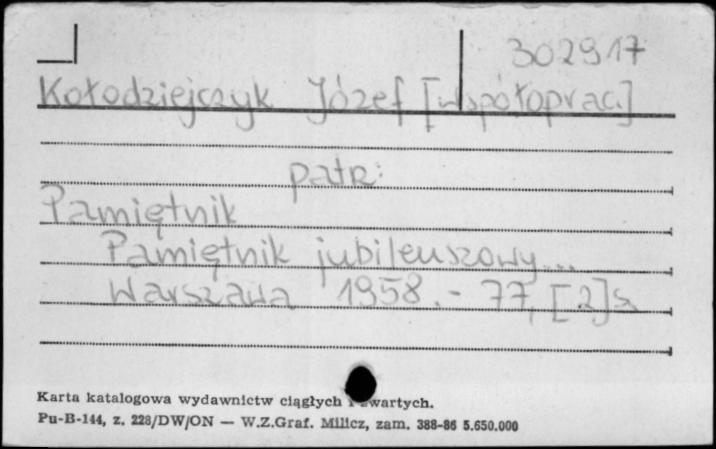 302917
Kołodziejczyk Józef [współoprac.]
patrz:
Pamiętnik
Pamiętnik jubileuszowy...
Warszawa 1958.- 77, [2]s.
Karta katalogowa wydawnictw ciągłych i zwartych.
Pu-B-144, z. 228/DW/ON — W.Z.Graf. Milicz, zam. 388-86 5.650.000